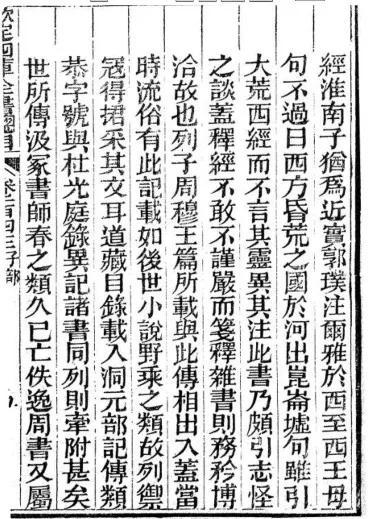 經淮南子猶爲近實郭璞注爾雅於西至西王母
句不過曰西方昏荒之國於河出崑崙墟句雖引
大荒西經而不言其靈異其注此書乃頗引志怪
之談蓋釋經不敢不謹嚴而箋釋雜書則務矜博
洽故也列子周穆王篇所載與此傳相出入蓋當
時流俗有此記載如後世小說野乘之類故列禦
冦得捃采其文耳道藏目錄載入洞元部記傳類
恭字號與杜光庭錄異記諸書同列則牽附甚矣
世所傳汲冢書師春之類久已亡佚逸周書又屬
欽定四庫全書總目 卷一百四 子部